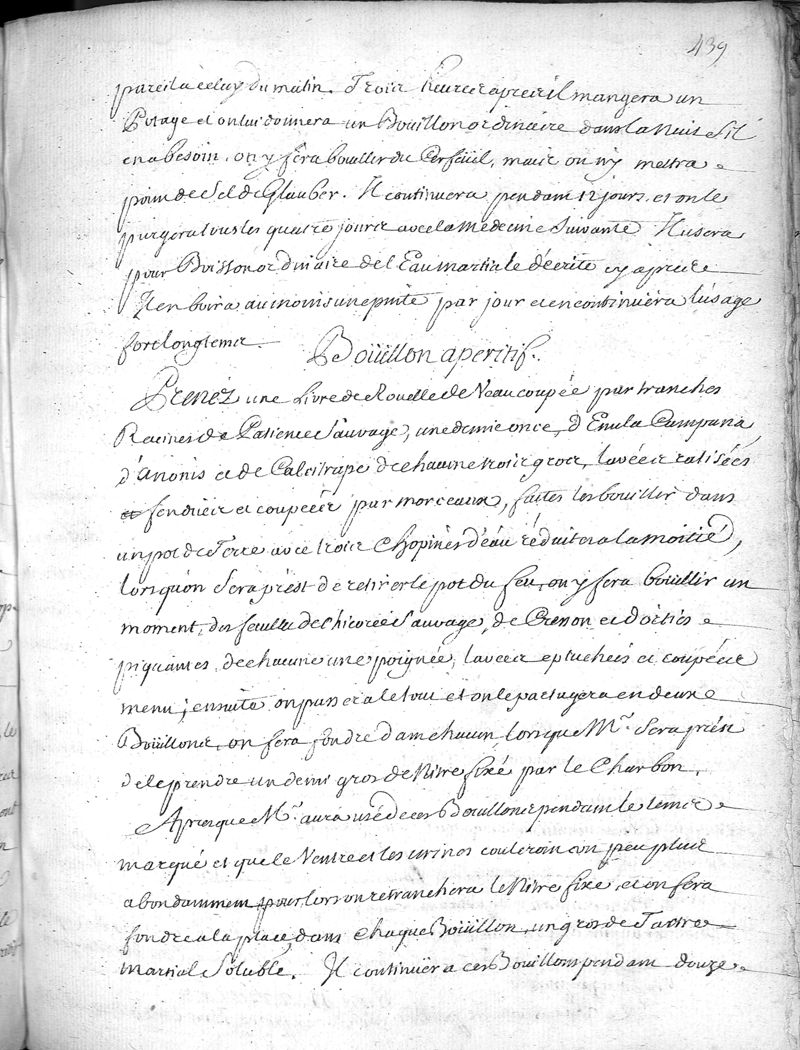 439
pareil a celuy du matin. Trois heures apres il mangera un
Potage et on lui donnera un Bouillon ordinaire dans la Nuit s'il
en a besoin, on y fera bouillir du Cerfeüil, mais on n'y mettra
point de Sel de Glauber. Il continuera pendant 12 jours, et on le
purgera tous les quatre jours avec la Medecine Suivante Il usera
pour Boisson ordinaire de l'Eau martiale décrite cy apres
Il en boira au moins une pinte par jour et en continuëra l'usage
fort longtems.
Boüillon aperitif.
Prenez une Livre de Roüelle de Veau coupée par tranches
Racines de Patience Sauvage, une demie once, d'Enula Campana,
d'Anonis et de Calcitrape de chacune trois gros, lavées ratisées
fendües et coupées par morceaux, faites les bouillir dans
un pot de Terre avec trois Chopines d'eau réduites a la moitié,
lorsqu'on sera prest de retirer le pot du feu, on y fera bouillir un
moment, des feuilles de Chicorée Sauvage, de Cresson et d'orties
piquantes, de chacune une poignée, lavées epluchées et coupées
menu; ensuite on passera le tout et on le partagera en deux
Boüillons, on fera fondre dans chacun lorsque Mr. Sera prest
de le prendre un demi gros de Nitre fixé par le Charbon.
Apres que Mr. aura usé de ces Bouillons pendant le tems
marqué et que le Ventre et les urines couleront un peu plus
abondamment pour lors on retranchera le Nitre fixé, et on fera
fondre a la place dans Chaque Boüillon, un gros de Tartre
martial Soluble. Il continuëra ces Boüillons pendant douze